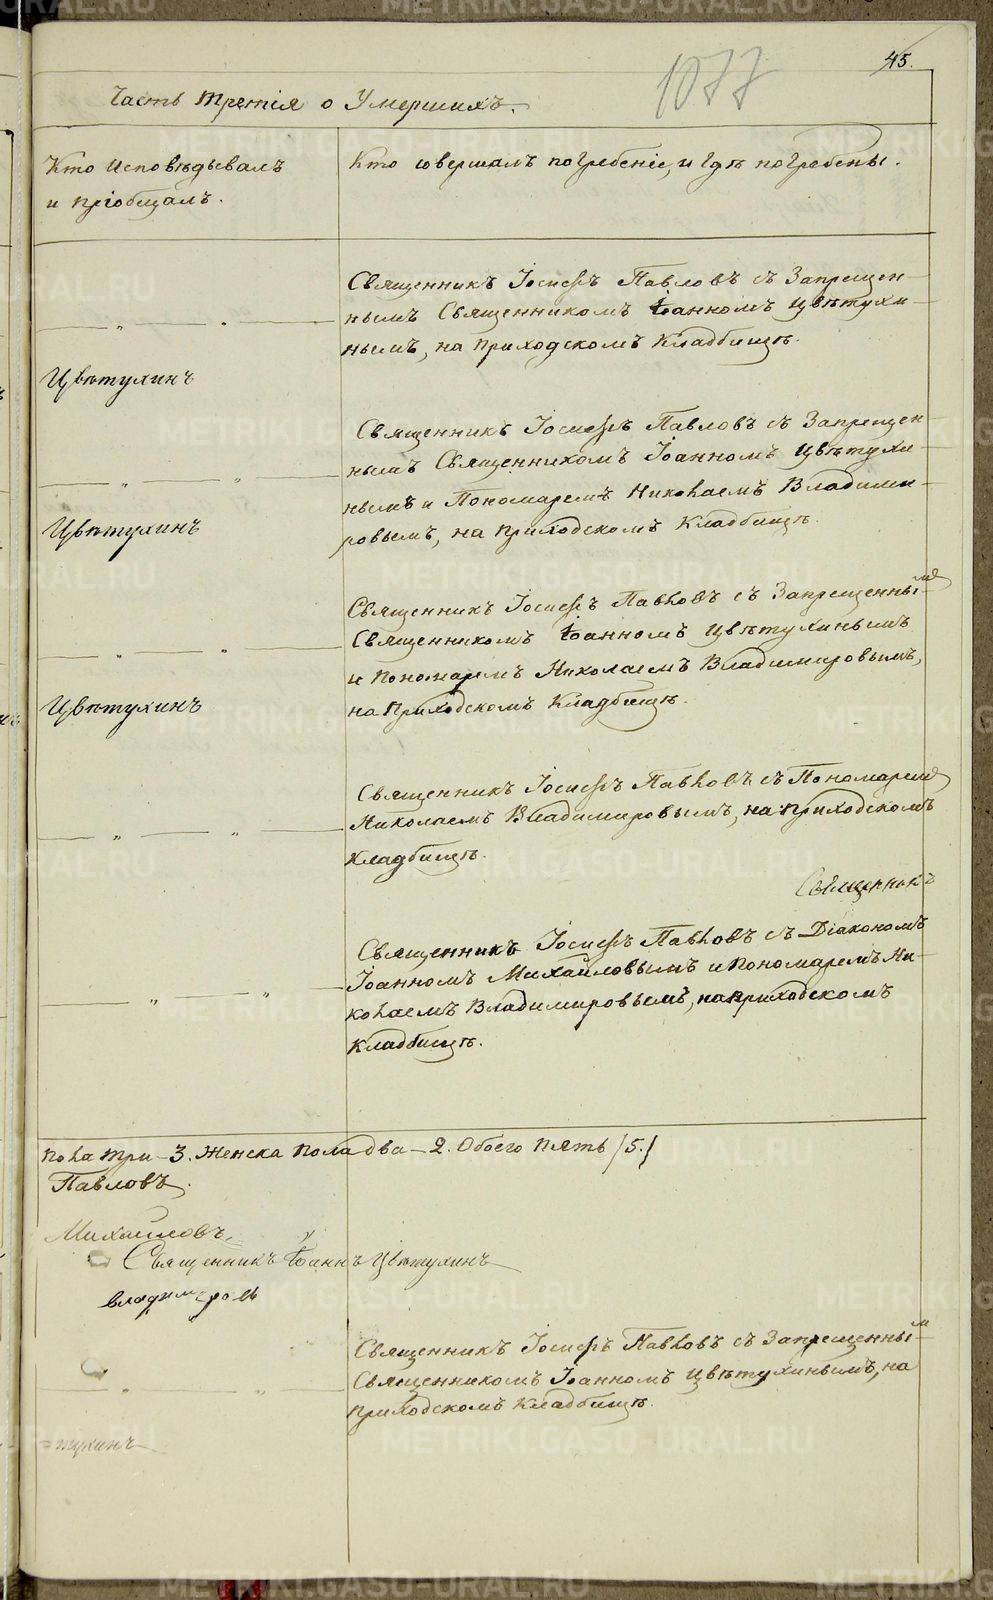 45.
1077
Часть третія о Умершихъ.
Кто исповѣдывалъ
и пріобщалъ.
Кто совершалъ погребеніе, и гдѣ погребены.
Священникъ Іосифъ Павловъ съ Запрещен-
нымъ Священникомъ Іоанномъ Цвѣтухи-
нымъ, на приходскомъ Кладбищѣ.
Цвѣтухинъ
Священникъ Іосифъ Павловъ съ Запрещен
нымъ Священникомъ Іоанномъ Цвѣтухи-
нымъ и Пономаремъ Николаемъ Владими-
ровымъ, на приходскомъ Кладбищѣ.
Цвѣтухинъ
Священникъ Іосифъ Павловъ съ Запрещеннымъ
Священникомъ Іоанномъ Цвѣтухинымъ
и пономаремъ Николаемъ Владимировымъ,
на Приходскомъ Кладбищѣ.
Цвѣтухинъ
Священникъ Іосифъ Павловъ съ Пономаремъ
Николаемъ Владимировымъ, на приходскомъ
Кладбищѣ.
Священникъ
Священникъ Іосифъ Павловъ съ Діакономъ
Іоанномъ Михайловымъ и Пономаремъ Ни-
колаемъ Владимировымъ, на приходскомъ
Кладбищѣ.
пола три – 3. Женска пола два – 2. Обоего пять /5./
Павловъ.
Михайловъ.
Священникъ Іоаннъ Цвѣтухинъ
Владимировъ
Священникъ Іосифъ Павловъ съ Запрещеннымъ
Священникомъ Іоанномъ Цвѣтухинымъ, на
приходскомъ Кладбищѣ.
=тухинъ
METRIKI.GASO-URAL.RU